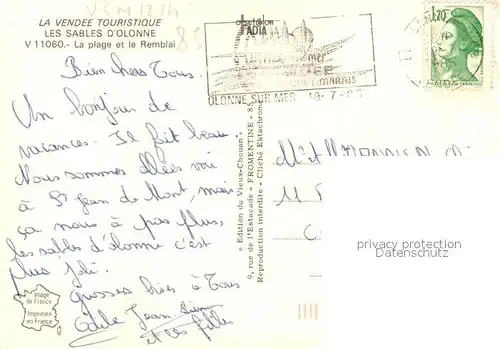 LA VENDEE TOURISTIQUE
LES SABLES D'OLONNE
V 11060.- La plage et le Remblai
Bien chers Tous.
Un bonjour de
vacances. Il fait beau.
Nous sommes allées voir
à St Jean de Mont, mais
ça nous à pas plus,
les sables d'olonne c'est
plus joli.
Grosses bises à Tous
Odile Jean
et les filles
Image
de France
Imprimée
en France
« Edition du Vieux-Chouan »
9, rue de l'Estacade - FROMENTINE - 85
Reproduction interdite - Cliché Ektachrome
OLONNE SUR MER 19-7-
MARAIS
1,70
privacy protection
Datenschutz